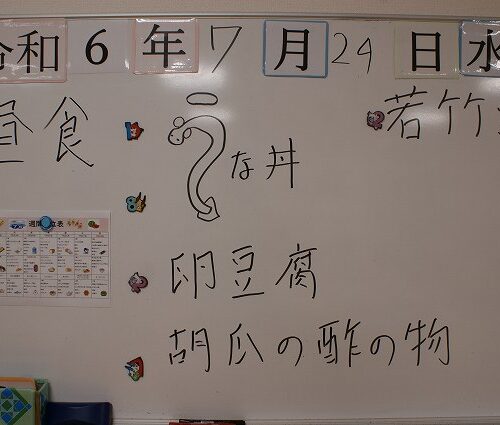 令和6年7月24日水
昼食
うな丼
若竹
卵豆腐
胡瓜の酢の物
週間 表